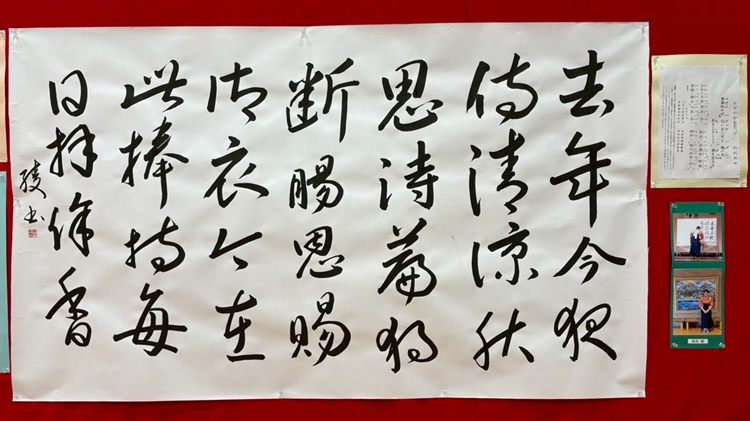 去年今夜
侍清涼秋
思詩篇独
断腸恩賜
御衣今在
此捧持毎
日拝餘香
綾書